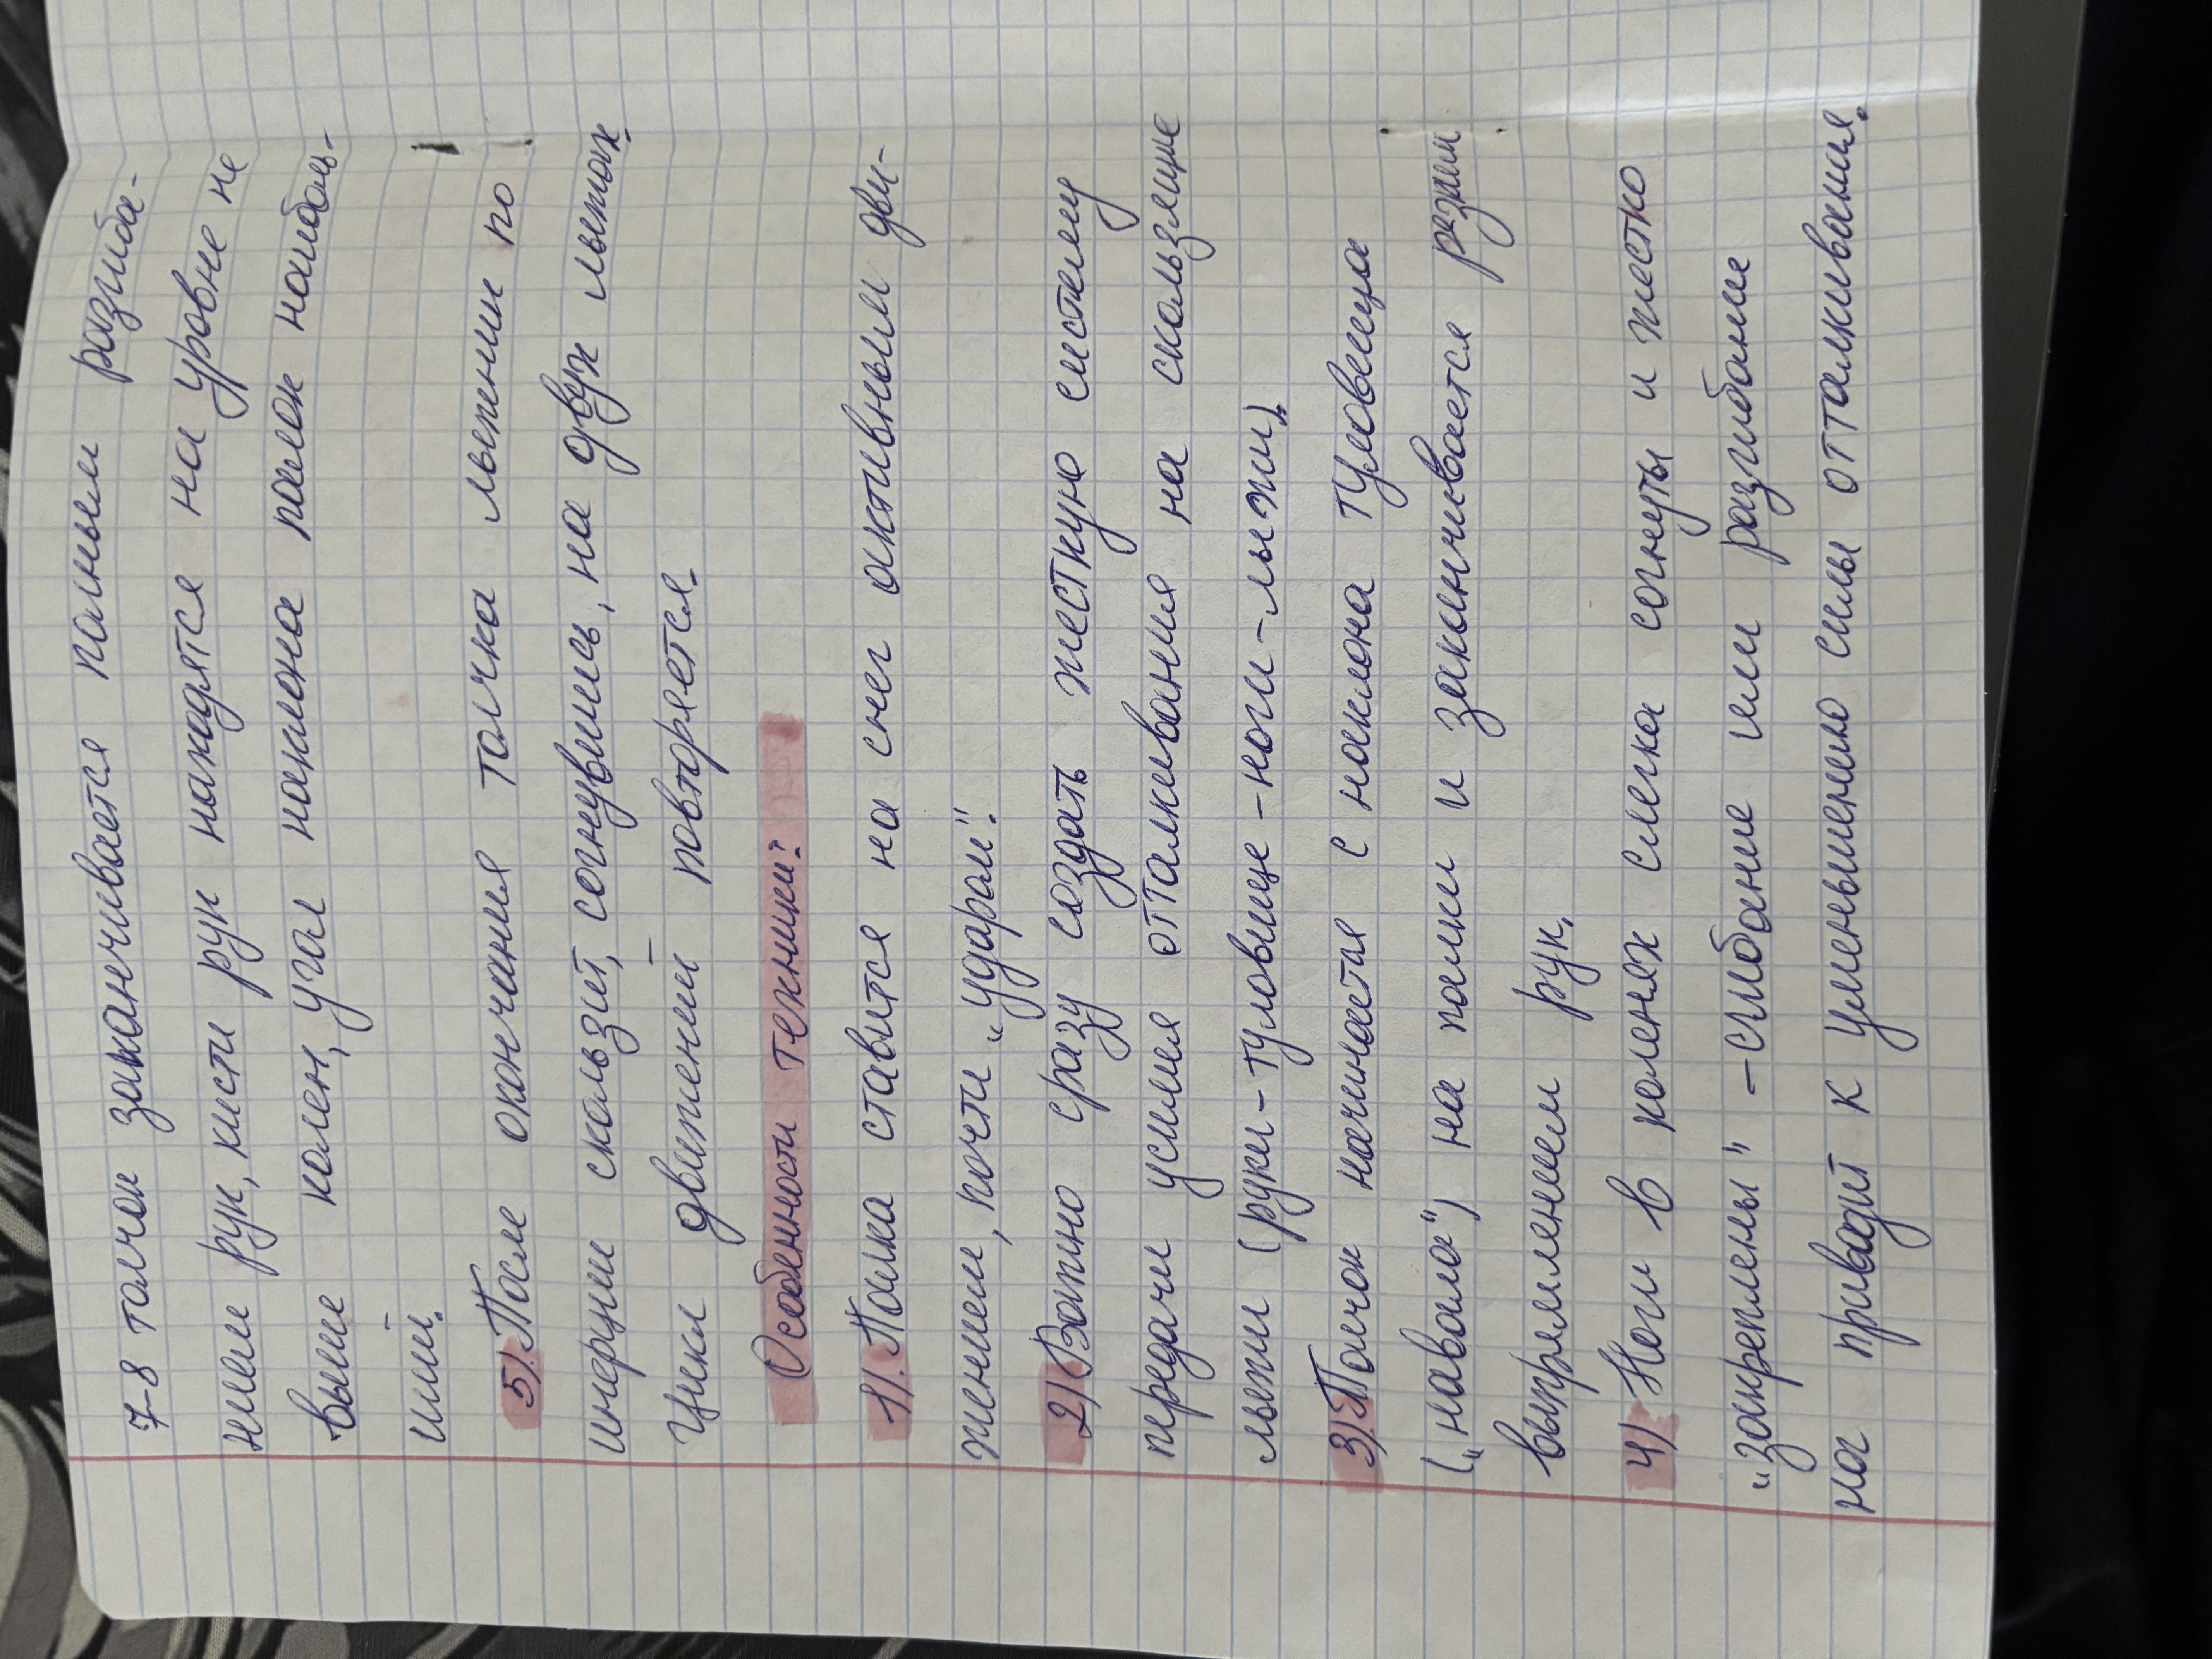 7-8 толчок заканчивается полным разгиба-
нием рук, кисти рук находятся на уровне не
выше колен, угол наклона палок наиболь-
ший.
5). После окончания толчка лыжник по
инерции скользит, согнувшись, на двух лыжах.
Цикл движений повторяется.
Особенности техники:
1). Палка ставится на снег активным дви-
жением, почти „ударом".
2) Важно сразу создать жесткую систему
передачи усилия отталкивания на скользящие
лыжи (руки-туловище-ноги-лыжи).
3). Толчок начинается с наклона туловища
(„навала") на палки и заканчивается резким
выпрямлением рук.
4). Ноги в коленях слегка согнуты и жестко
„закреплены" - сгибание или разгибание
ног приводит к уменьшению силы отталкивания.